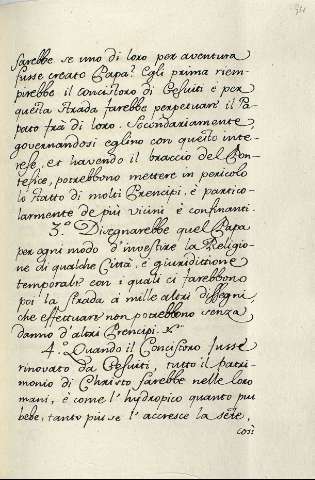 sarebbe se uno di loro per aventura
fusse creato Papa? Egli prima riem-
pirebbe il concistoro di Gesuiti e per
questa strada farebbe perpetuar il Pa-
pato frà di loro. Secundariamente,
governandosi eglino con questo inte-
rese, et havendo il braccio del Pon-
tefice, potrebbono mettere in pericolo
lo statto di molti Prencipi, e partico-
larmente de più vicini e confinanti.
3.º Disegnarebbe quel Papa
per ogni modo d'investire la Religio-
ne di qualche Città, e giuridittione
temporale con i quali ci farebbono
poi la strada à mille altri dissegni,
che effettuar non potrebbono senza
danno d'altri Prencipi.
4.º Quando il Concistoro fusse
rinovato da Gesuiti, tutto il patri-
monio di Christo sarebbe nelle loro
mani, e come l'hydropico quanto più
bebe, tanto più se l'accresce la sete,
così